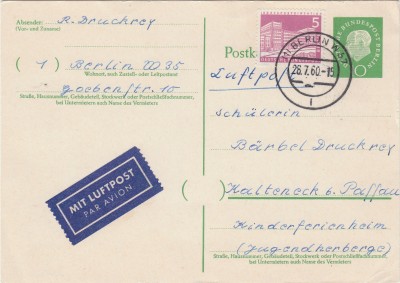 Absender: R. Druckrey
(Vor- und Zuname)
(1) Berlin W35
Wohnort, auch Zustell- oder Leitpostamt
Goebenstr. 10
Straße, Hausnummer, Gebäudeteil, Stockwerk oder Postschließfachnummer,
bei Untermietern auch Name des Vermieters
MIT LUFTPOST
PAR AVION
5
DEUTSCHE BUNDESPOST BERLIN
BERLIN W35
28.7.60.-15
DEUTSCHE BUNDESPOST BERLIN
10
Postk
Luftpost
Schülerin
Bärbel Druckrey
( ) Kalteneck b. Passau
Kinderferienheim
(Jugendherberge)
Straße, Hausnummer, Gebäudeteil, Stockwerk oder Postschließfachnummer,
bei Untermietern auch Name des Vermieters